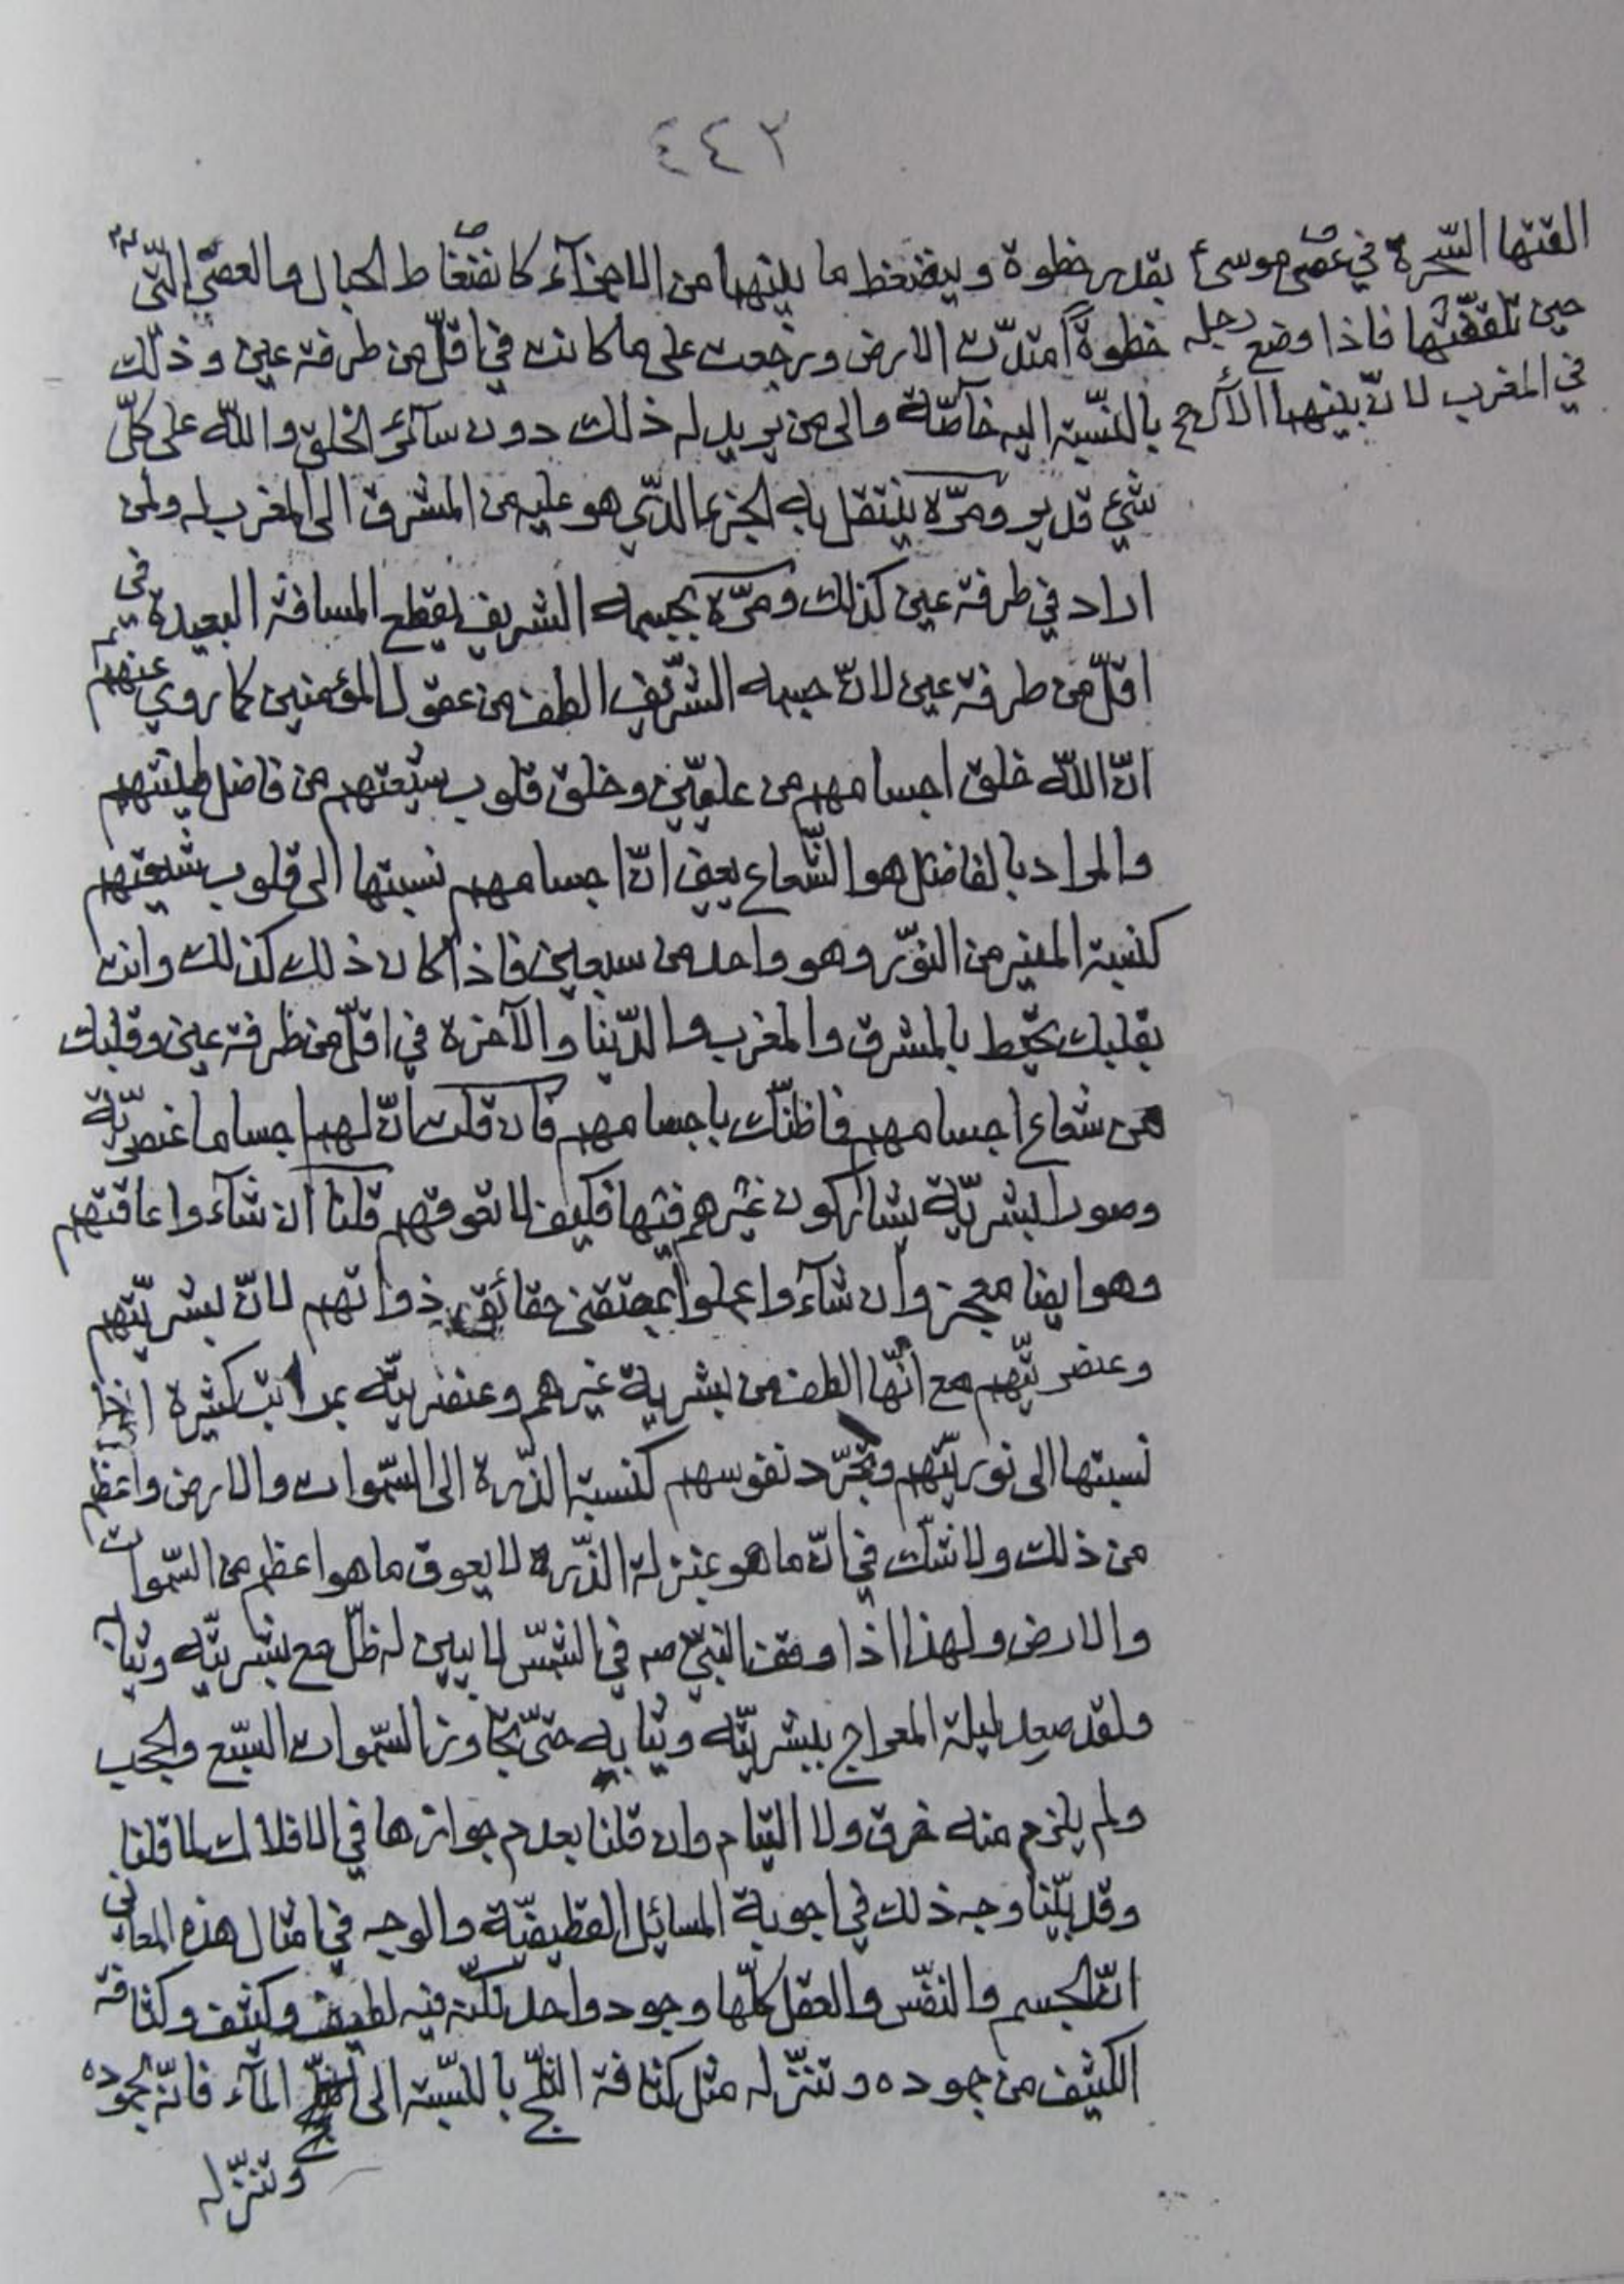 ٤٤٢
بقدر خطوة وينضغط ما بينهما من الاجزآء كانضغاط الحبال والعصي التي
القتها السّحرة في عصى موسىٰ
حين تلقفتها فاذا وضع رجله
في المغرب لانّ بينهما
خطوةً امتدّت الارض ورجعت على ما كانت في اقلّ من طرفة عين وذلك
بالنّسبة اليه خاصّة والى من يريد له ذلك دون سآئر الخلق والله على كلّ
شيء قدير ومرّة ينتقل به الجزء الذّي هو عليه من المشرق الى المغرب له ولمن
اراد في طرفة عين كذلك ومرّة بجسمه الشريف يقطع المسافة البعيدة في
اقلّ من طرفة عين لانّ جسمه الشّريف الطف من عقول المؤمنين كما روي عنهم
انّ الله خلق اجسامهم من علّيّين وخلق قلوب شيعتهم من فاضل طينتهم
والمراد بالفاضل هو الشّعاع يعني انّ اجسامهم نسبتها الى قلوب شيعتهم
كنسبة المنير من النّور وهو واحد من سبعين فاذا كان ذلك كذلك وانت
بقلبك تحيط بالمشرق والمغرب والدّنيا والآخرة في اقلّ من طرفة عين وقلبك
من شعاع اجسامهم فما ظنّك باجسامهم فان قلت انّ لهم اجساما عنصريّة
وصورا بشريّة يشاركون غيرهم فيها فكيف لا تعوقهم قلنا ان شآءوا عاقتهم
وهو ايضا معجز وان شآءوا عملوا بمقتضى حقائق ذواتهم لانّ بشريّتهم
وعنصريّتهم مع انّها الطف من بشرية غيرهم وعنصريّته بمراتب كثيرة
نسبتها الى نوريّتهم وتجرّد نفوسهم كنسبة الذّرة الى السّموات والارض واعظم
من ذلك ولا شكّ في انّ ما هو بمنزلة الذّرة لا يعوق ما هو اعظم من السّموات
والارض ولهذا اذا وقف النّبي صه في الشّمس لا يبين له ظلّ مع بشريّته وثيابه
ولقد صعد ليلة المعراج ببشريّته وثيابه حتّى تجاوز السّموات السّبع والحجب
ولم يلزم منه خرق ولا التيام وان قلنا بعدم جوازها في الافلاك لما قلنا
وقد بيّنا وجه ذلك في اجوبة المسائل القطيفيّة والوجه في امثال هذه المعاني
انّ الجسم والنفّس والعقل كلّها وجود واحد لكنّه فيه لطيف وكثيف وكثافة
الكثيف من جموده وتنزّله مثل كثافة الثلّج بالنّسبة الى المآء فانّه بجموده
وتنزّله